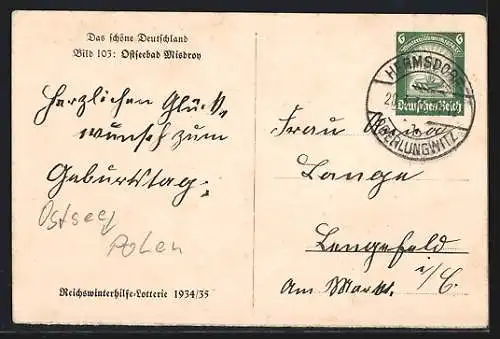 Das schöne Deutschland
Bild 103: Ostseebad Misdroy
Herzlichen Glück-
wunsch zum
Geburtstag.
Ostsee
Polen
Reichswinterhilfe-Lotterie 1934/35
6 6
Deutsches Reich
HERMSDORF
OBERLUNGWITZ
Frau
Lange
Lengefeld
Am Markt. i/E.